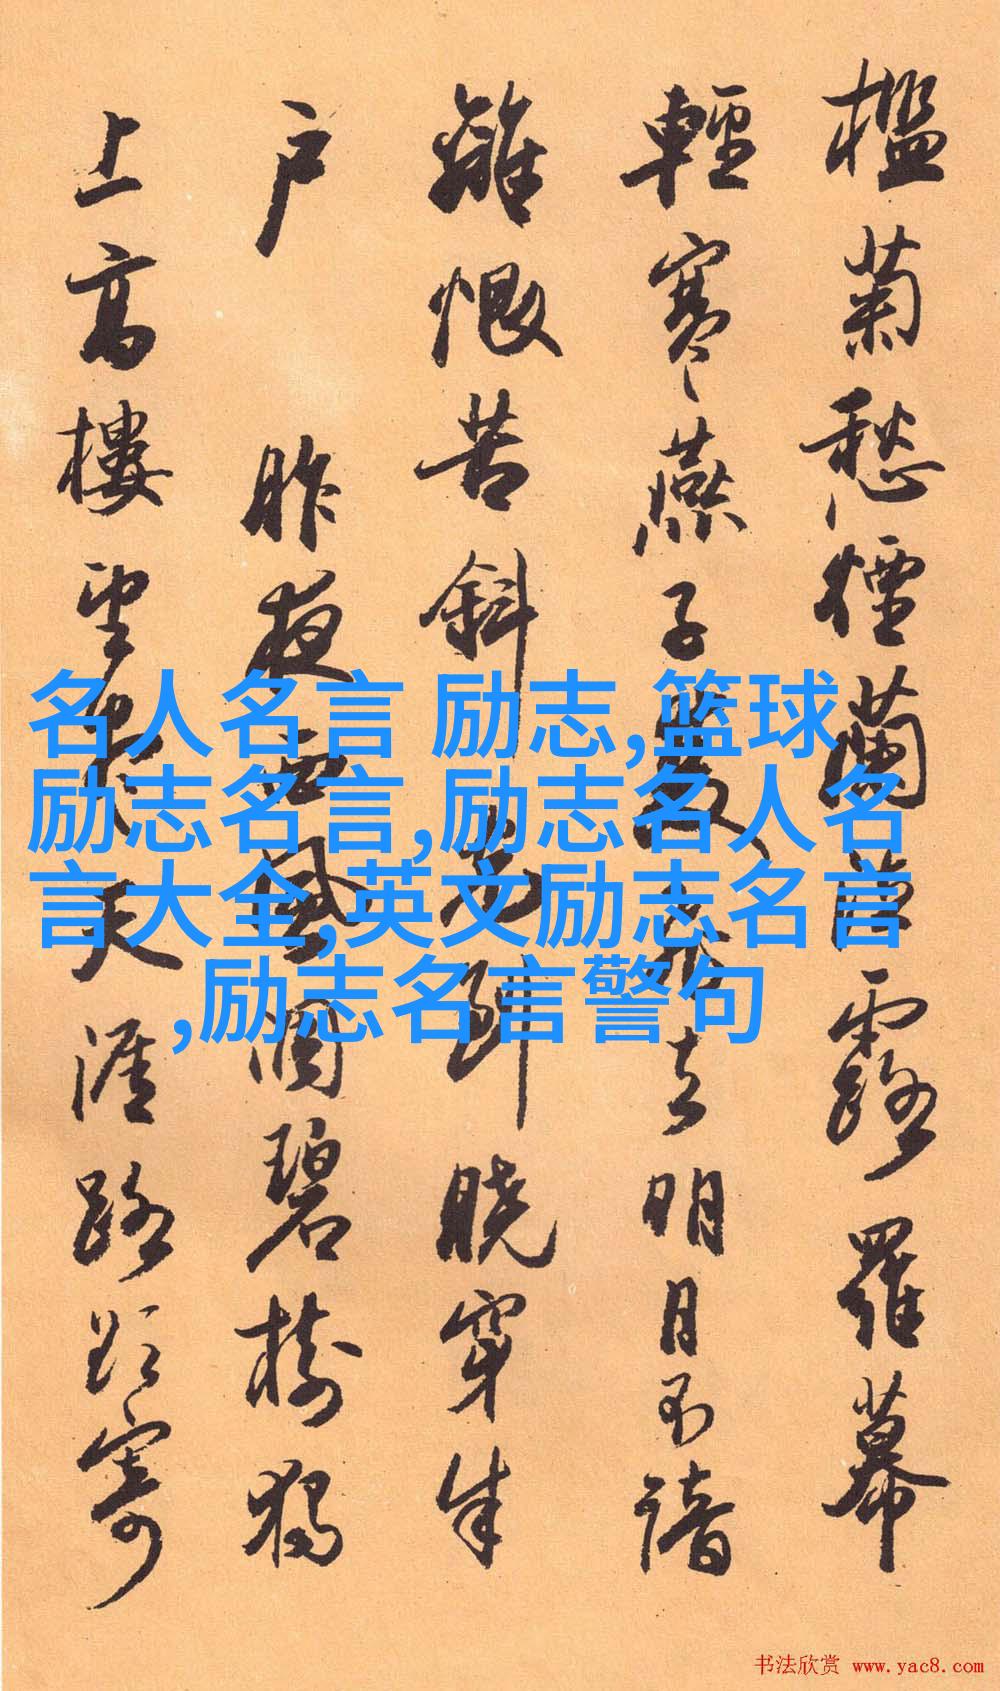 檻菊愁煙蘭泣露羅幕
輕寒燕子雙飛去明月不諳
離恨苦斜光到曉穿朱
户 昨夜西風凋碧樹獨
上高樓望盡天涯路欲寄
名人名言 励志,篮球
励志名言,励志名人名
言大全,英文励志名言
,励志名言警句
书法欣赏 www.yac8.com